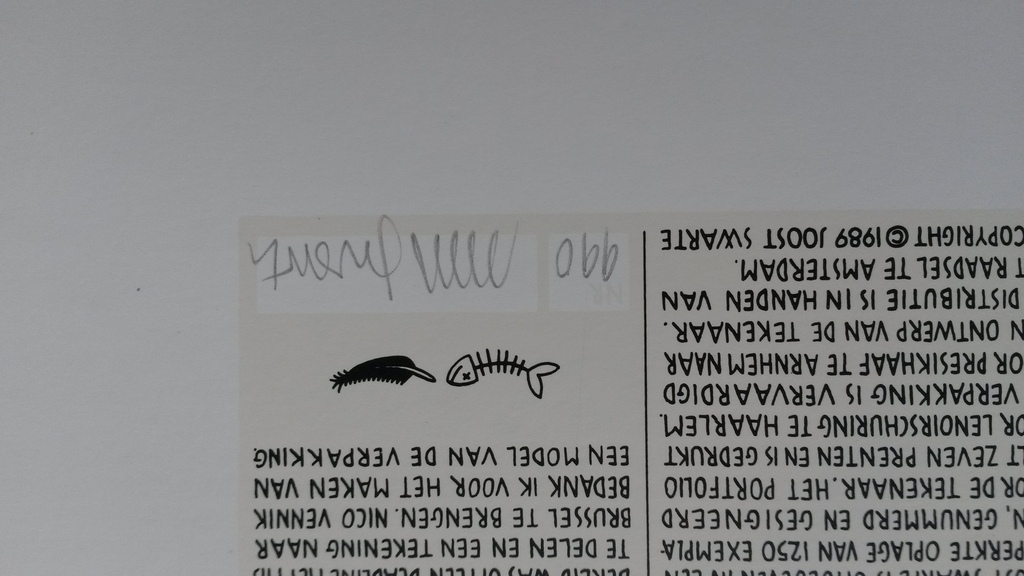 PERKTE OPLAGE VAN 1250 EXEMPLA
N, GENUMMERD EN GESIGNEERD
OR DE TEKENAAR. HET PORTFOLIO
LT ZEVEN PRENTEN EN IS GEDRUKT
OR LENOIRSCHURING TE HAARLEM.
VERPAKKING IS VERVAARDIGD
OR PRESIKHAAF TE ARNHEM NAAR
N ONTWERP VAN DE TEKENAAR.
DISTRIBUTIE IS IN HANDEN VAN
T RAADSEL TE AMSTERDAM.
COPYRIGHT © 1989 JOOST SWARTE
TE DELEN EN EEN TEKENING NAAR
BRUSSEL TE BRENGEN. NICO VENNIK
BEDANK IK VOOR HET MAKEN VAN
EEN MODEL VAN DE VERPAKKING
NR 990